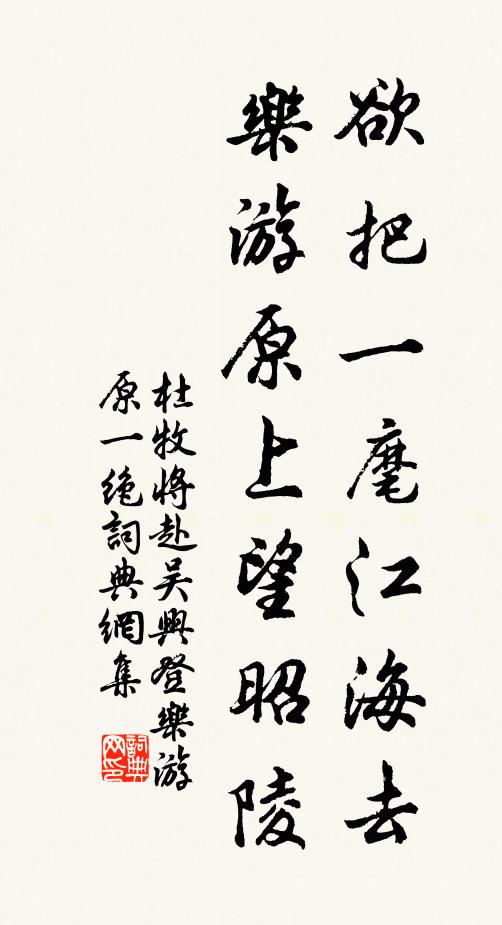 欲把一麾江海去
樂游原上望昭陵
杜牧將赴吴興登樂游
原一絶詞典網集
詞典
网印